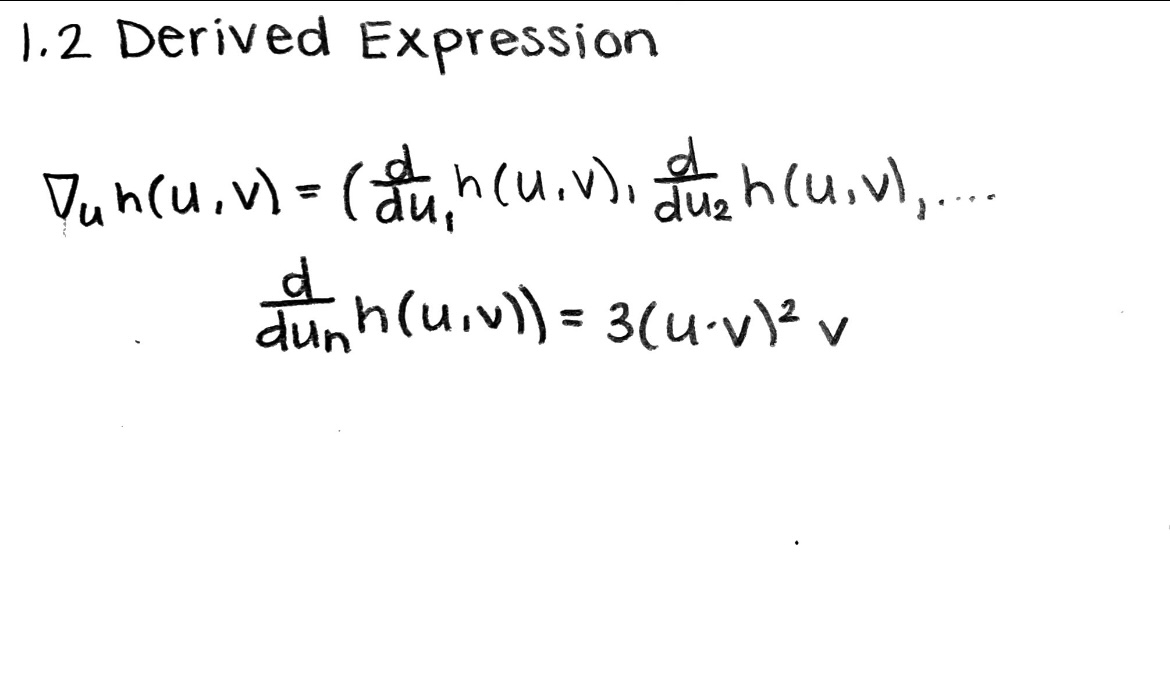 1.2 Derived Expression
∇ᵤ h(u,v) = (d/du₁ h(u,v), d/du₂ h(u,v), ....
d/duₙ h(u,v)) = 3(u·v)² v